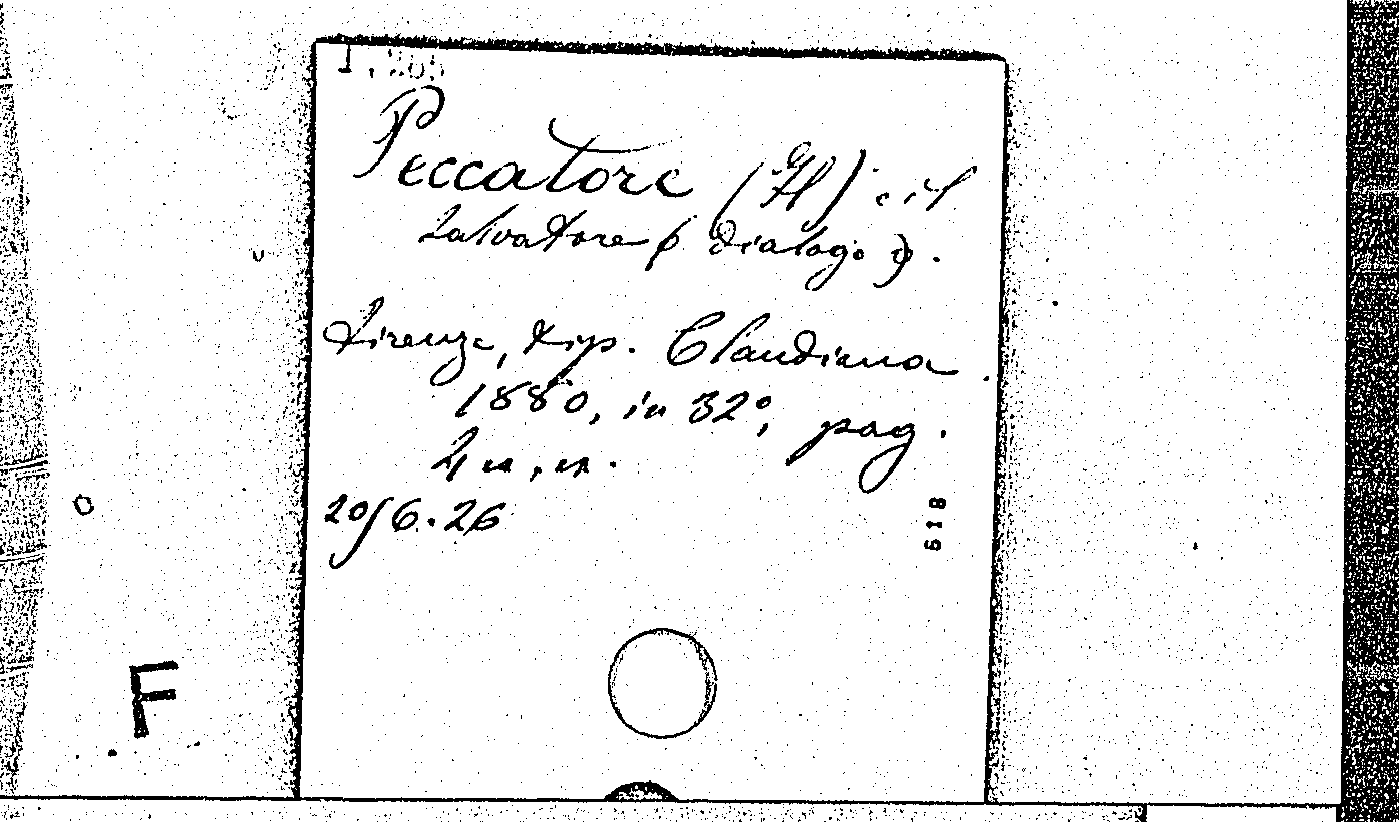 Peccatore (Il) e il
Salvatore (dialogo).
Firenze, tip. Claudiana.
1880, in 32°, pag.
4 n.n.
20/6.26
618
F